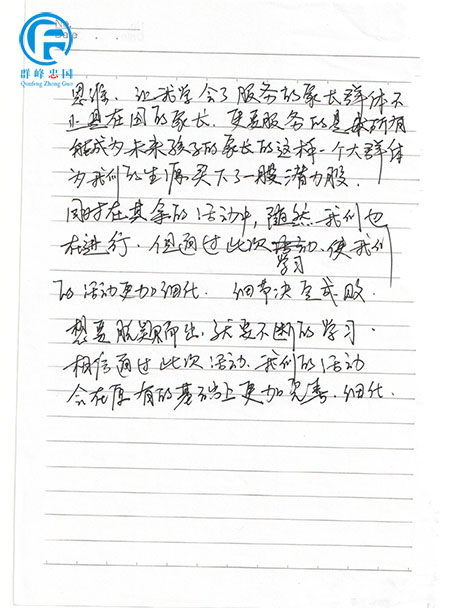 群峰忠国
Qunfeng Zhong Guo
No.
Date
思维。让我学会了服务的家长群体不
止是在园的家长,更要服务的是那所有
能成为未来孩子的家长的这样一个大群体
为我们的生源买下了一股潜力股。
同时在其余的活动中,随然我们也
在进行,但通过此次活动,使我们
学习
的活动更加细化。细节决定成败。
想要脱颖而出,就要不断的学习。
相信通过此次活动,我们的活动
会在原有的基础上更加完善,细化。